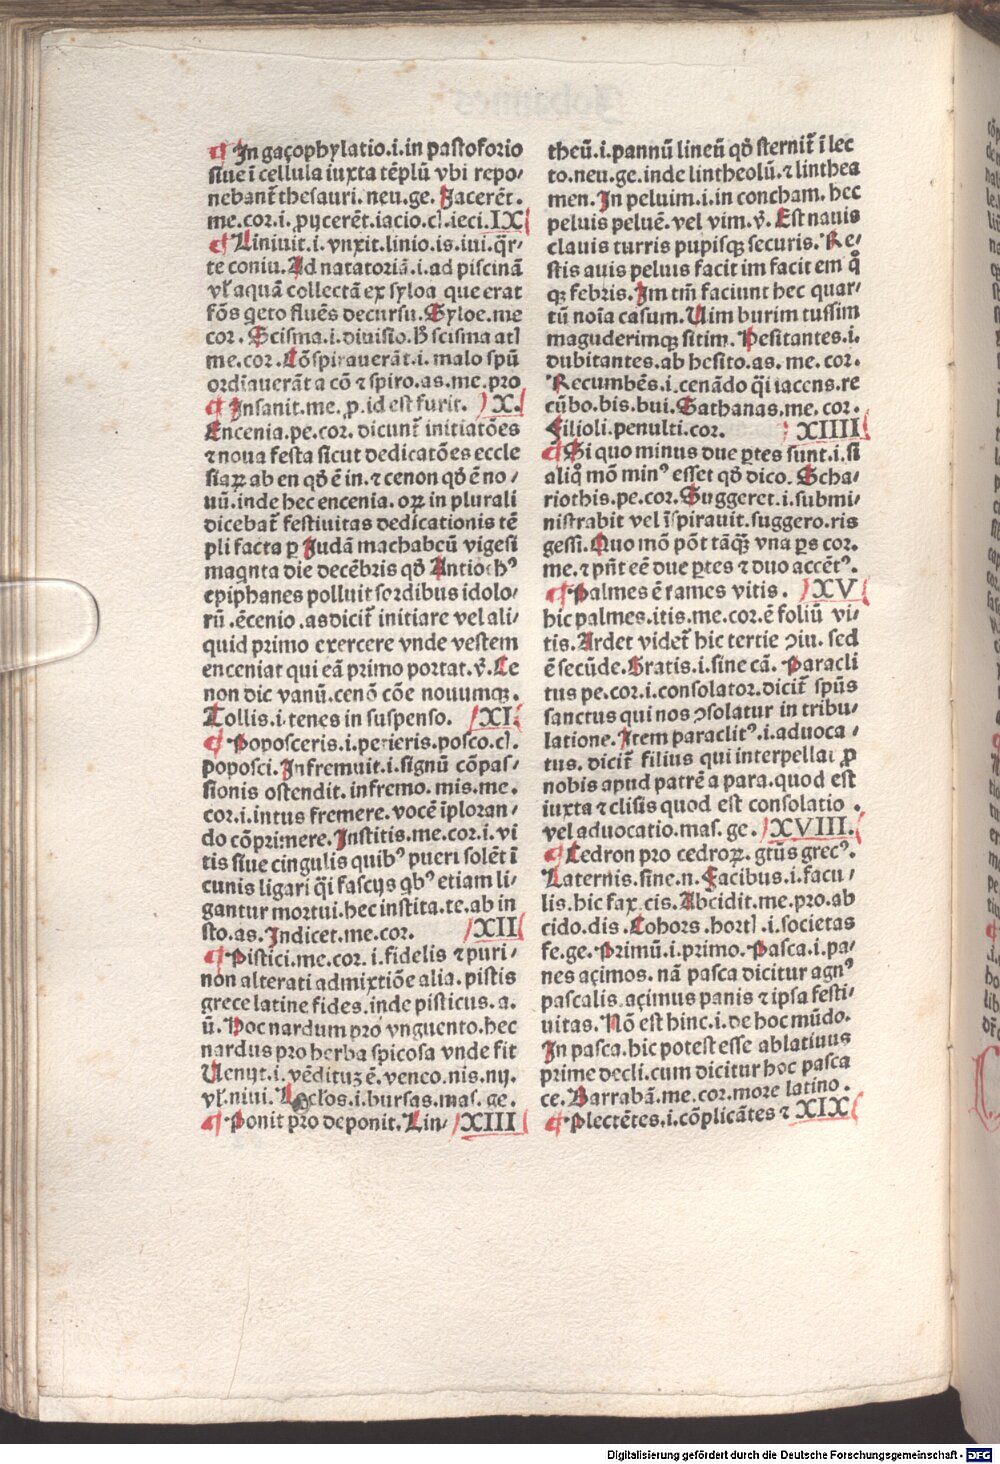 ¶ In gaçophylatio.i.in pastoforio
siue ī cellula iuxta tēplū vbi repo⸗
nebant̄ thesauri.neu.ge. Jacerēt.
me.cor.i.ꝓijcerēt.iacio.cĪ.ieci. IX
¶ Liniuit.i.vnxit.linio.is.iui.q̄r⸗
te coniu. Ad natatoriā.i.ad piscinā
vƚ aquā collectā ex syloa que erat
fōs q̨eto fluēs decursu. Syloe.me
cor. Scisma.i.diuisio.h̄ scisma atĪ
me.cor. Cōspirauerāt.i. malo spū
ordīauerāt a cō ⁊ spiro.as.me.pro
¶ Insanit.me.p.id est furit. X.
Encenia.pe.cor. dicunt̄ initiatōes
⁊ noua festa sicut dedicatōes eccle
siaꝝ ab en qđ ē in.⁊ cenon qđ ē no⸗
uū.inde hec encenia.oꝝ in plurali
dicebat̄ festiuitas dedicationis tē
pli facta ꝑ Judā machabeū vigesi
maq̨nta die decēbris qđ Antioch⁹
epiphanes polluit sordibus idolo⸗
rū.ēcenio.as dicit̄ initiare vel ali⸗
quid primo exercere vnde vestem
enceniat qui eā primo portat.v̄. Ce
non dic vanū.cenō cōe nouumqꝫ.
Tollis.i.tenes in suspenso. XI.
¶ Poposceris.i.petieris.posco.cĪ.
poposci. Infremuit.i.signū cōpas⸗
sionis ostendit. infremo. mis.me.
cor.i.intus fremere.vocē īploran⸗
do cōprimere. Institis.me.cor.i.vi
tis siue cingulis quib⁹ pueri solēt ī
cunis ligari q̄i fascijs q̨b⁹ etiam li⸗
gantur mortui.hec instita.te.ab in
sto.as. Indicet.me.cor. XII
¶ Pistici.me.cor.i.fidelis ⁊ puri⸗
non alterati admixtiōe alia.pistis
grece latine fides.inde pisticus.a.
ū. Hoc nardum pro vnguento.hec
nardus pro herba spicosa vnde fit
Uenijt.i.vēdituꝫ ē.veneo.nis.nij.
vƚ.niui. Loclos.i.bursas.mas.ge.
¶ Ponit pro deponit. Lin⸗ XIII
theū.i.pannū lineū qđ sternit̄ ī lec
to.neu.ge.inde lintheolū.⁊ linthea
men. In peluim.i.in concham.hec
peluis peluē.vel vim.v̄. Est nauis
clauis turris pupisqꝫ securis. Re⸗
stis auis peluis facit im facit em q̊
qꝫ febris. Im tm̄ faciunt hec quar⸗
tū noīa casum. Uim burim tussim
maguderimqꝫ sitim. Hesitantes.i.
dubitantes.ab hesito.as.me.cor.
Recumbēs.i.cenādo q̄i iacens.re
cūbo.bis.bui. Sathanas.me.cor.
Filioli.penulti.cor. XIIII
¶ Si quo minus due ꝑtes sunt.i.si
aliq̊ mō min⁹ esset qđ dico. Scha⸗
riothis.pe.cor. Suggeret.i.submi⸗
nistrabit vel īspirauit.suggero.ris
gessi. Quo mō pōt tāqꝫ vna ꝑs cor.
me.⁊ pn̄t eē due ꝑtes ⁊ duo accēt⁹.
¶ Palmes ē rames vitis. XV
hic palmes.itis.me.cor.ē foliū vi⸗
tis. Ardet videt̄ hic tertie ꝯiu. sed
ē secūde. Gratis.i.sine cā. Paracli
tus pe.cor.i.consolator.dicit̄ spūs
sanctus qui nos ꝯsolatur in tribu⸗
latione. Item paraclit⁹.i.aduoca⸗
tus. dicit̄ filius qui interpellat ꝓ
nobis apud patrē a para.quod est
iuxta ⁊ clisis quod est consolatio.
vel aduocatio.mas.ge. XVIII.
¶ Cedron pro cedroꝝ. gtūs grec⁹.
Laternis.sine.n. Facibus.i.facu⸗
lis.hic fax.cis. Abcidit.me.pro.ab
cido.dis. Cohors.hortĪ.i.societas
fe.ge. Primū.i.primo. Pasca.i.pa⸗
nes açimos. nā pasca dicitur agn⁹
pascalis.açimus panis ⁊ ipsa festi⸗
uitas. Nō est hinc.i.de hoc mūdo.
In pasca.hic potest esse ablatiuus
prime decli.cum dicitur hoc pasca
ce. Barrabā.me.cor.more latino.
¶ Plectētes.i.cōplicātes ⁊ XIX
Digitalisierung gefördert durch die Deutsche Forschungsgemeinschaft - DFG